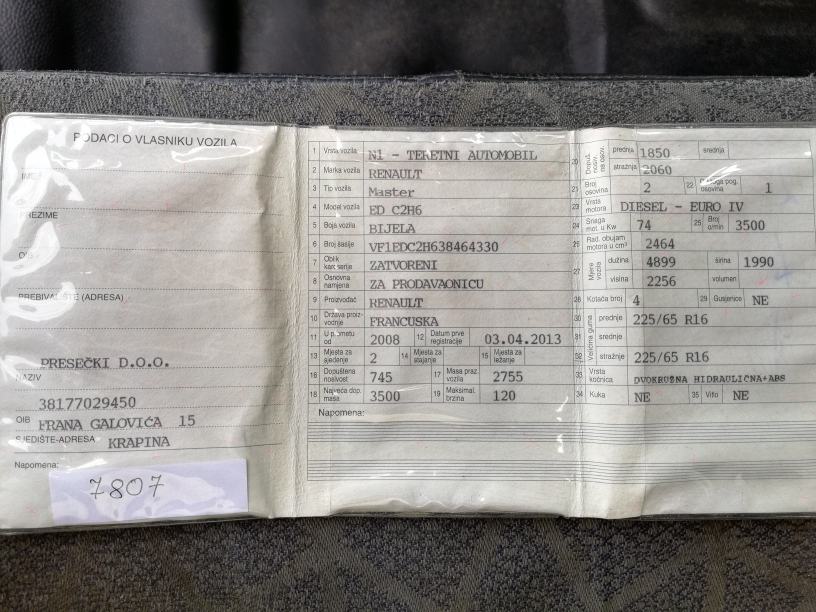 PODACI O VLASNIKU VOZILA
IME
PREZIME
OIB
PREBIVALIŠTE (ADRESA)
PRESEČKI D.O.O.
NAZIV
38177029450
OIB FRANA GALOVIĆA 15
SJEDIŠTE-ADRESA KRAPINA
Napomena:
7807
1 Vrsta vozila N1 - TERETNI AUTOMOBIL
2 Marka vozila RENAULT
3 Tip vozila Master
4 Model vozila ED C2H6
5 Boja vozila BIJELA
6 Broj šasije VF1EDC2H638464330
7 Oblik karoserije ZATVORENI
8 Osnovna namjena ZA PRODAVAONICU
9 Proizvođač RENAULT
10 Država proizvodnje FRANCUSKA
11 U prometu od 2008 12 Datum prve registracije 03.04.2013
13 Mjesta za sjedenje 2 14 Mjesta za stajanje 15 Mjesta za ležanje
16 Dopuštena nosivost 745 17 Masa praz. vozila 2755
18 Najveća dop. masa 3500 19 Maksimal. brzina 120
Napomena:
20 Dopuš. nosiv. na osov. prednja 1850 srednja
stražnja 2060
21 Broj osovina 2 22 pog. osovina 1
23 Vrsta motora DIESEL - EURO IV
24 Snaga mot. u Kw 74 25 Broj o/min 3500
26 Rad. obujam motora u cm³ 2464
27 Mjere vozila dužina 4899 širina 1990
visina 2256 volumen
28 Kotača broj 4 29 Gusjenice NE
30 Veličina guma prednje 225/65 R16
31 srednje
32 stražnje 225/65 R16
33 Vrsta kočnica DVOKRUŽNA HIDRAULIČNA+ABS
34 Kuka NE 35 Vitlo NE